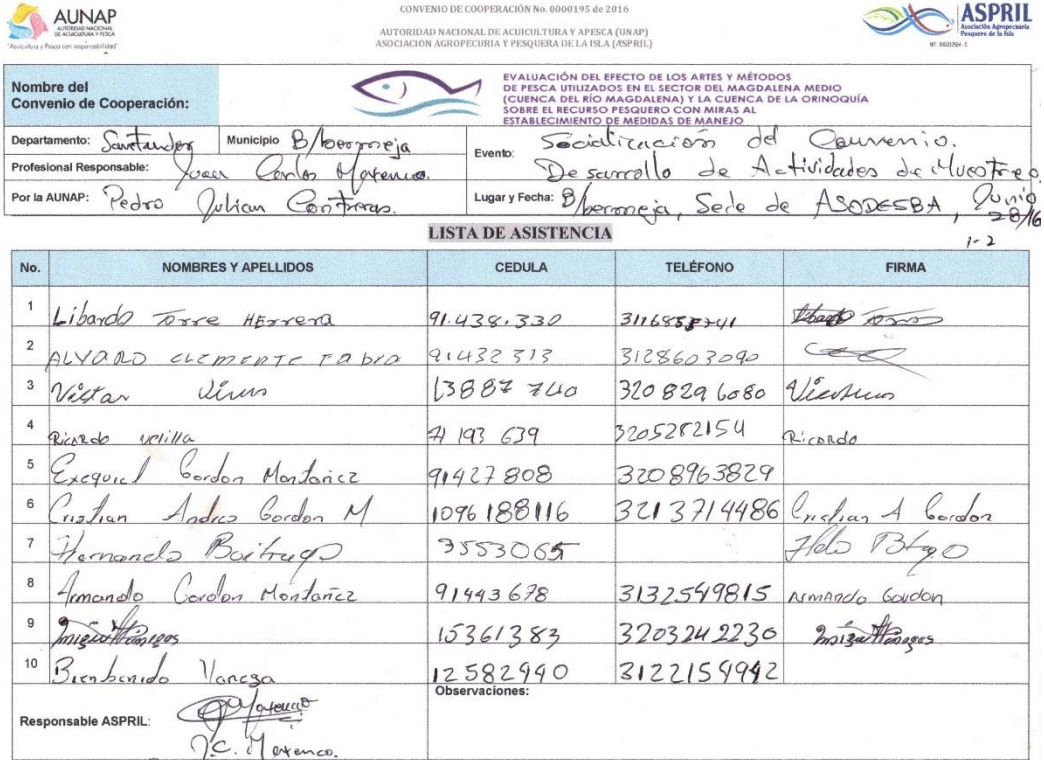 AUNAP
AUTORIDAD NACIONAL
DE ACUICULTURA Y PESCA
"Acuicultura y Pesca con responsabilidad"
CONVENIO DE COOPERACIÓN No. 0000195 de 2016
AUTORIDAD NACIONAL DE ACUICULTURA Y APESCA (UNAP)
ASOCIACION AGROPECURIA Y PESQUERA DE LA ISLA (ASPRIL)
ASPRIL
Asociación Agropecuaria
Pesquera de la Isla
Nombre del
Convenio de Cooperación:
EVALUACIÓN DEL EFECTO DE LOS ARTES Y MÉTODOS
DE PESCA UTILIZADOS EN EL SECTOR DEL MAGDALENA MEDIO
(CUENCA DEL RÍO MAGDALENA) Y LA CUENCA DE LA ORINOQUÍA
SOBRE EL RECURSO PESQUERO CON MIRAS AL
ESTABLECIMIENTO DE MEDIDAS DE MANEJO
Departamento: Santander Municipio B/bermeja
Evento: Socialización del Convenio.
Desarrollo de Actividades de Muestreo.
Profesional Responsable: Juan Carlos
Por la AUNAP: Pedro Julian Contreras.
Lugar y Fecha: B/bermeja, Sede de ASODESBA, Junio 28/16
LISTA DE ASISTENCIA
1-2
No. NOMBRES Y APELLIDOS CEDULA TELÉFONO FIRMA
1 Libardo Torre Herrera 91.438.330 Libardo Torres
2 ALVARO CLEMENTE 91432313 3128603090
3 13887740 3208296080
4 Ricardo velilla 71193639 3205282154 Ricardo
5 Exequiel Gordon Montañez 91427808 3208963829
6 Cristian Andres Gordon M 1096188116 3213714486 Cristian A Gordon
7 Hernando Buitrago 3553065 Hdo Btgo
8 Armando Gordon Montañez 91443678 3132549815 ARMANDO Gordon
9 15361383 3203242230
10 Bienbenido Vanega 12582940 3122154942
Responsable ASPRIL:
J.C.
Observaciones: